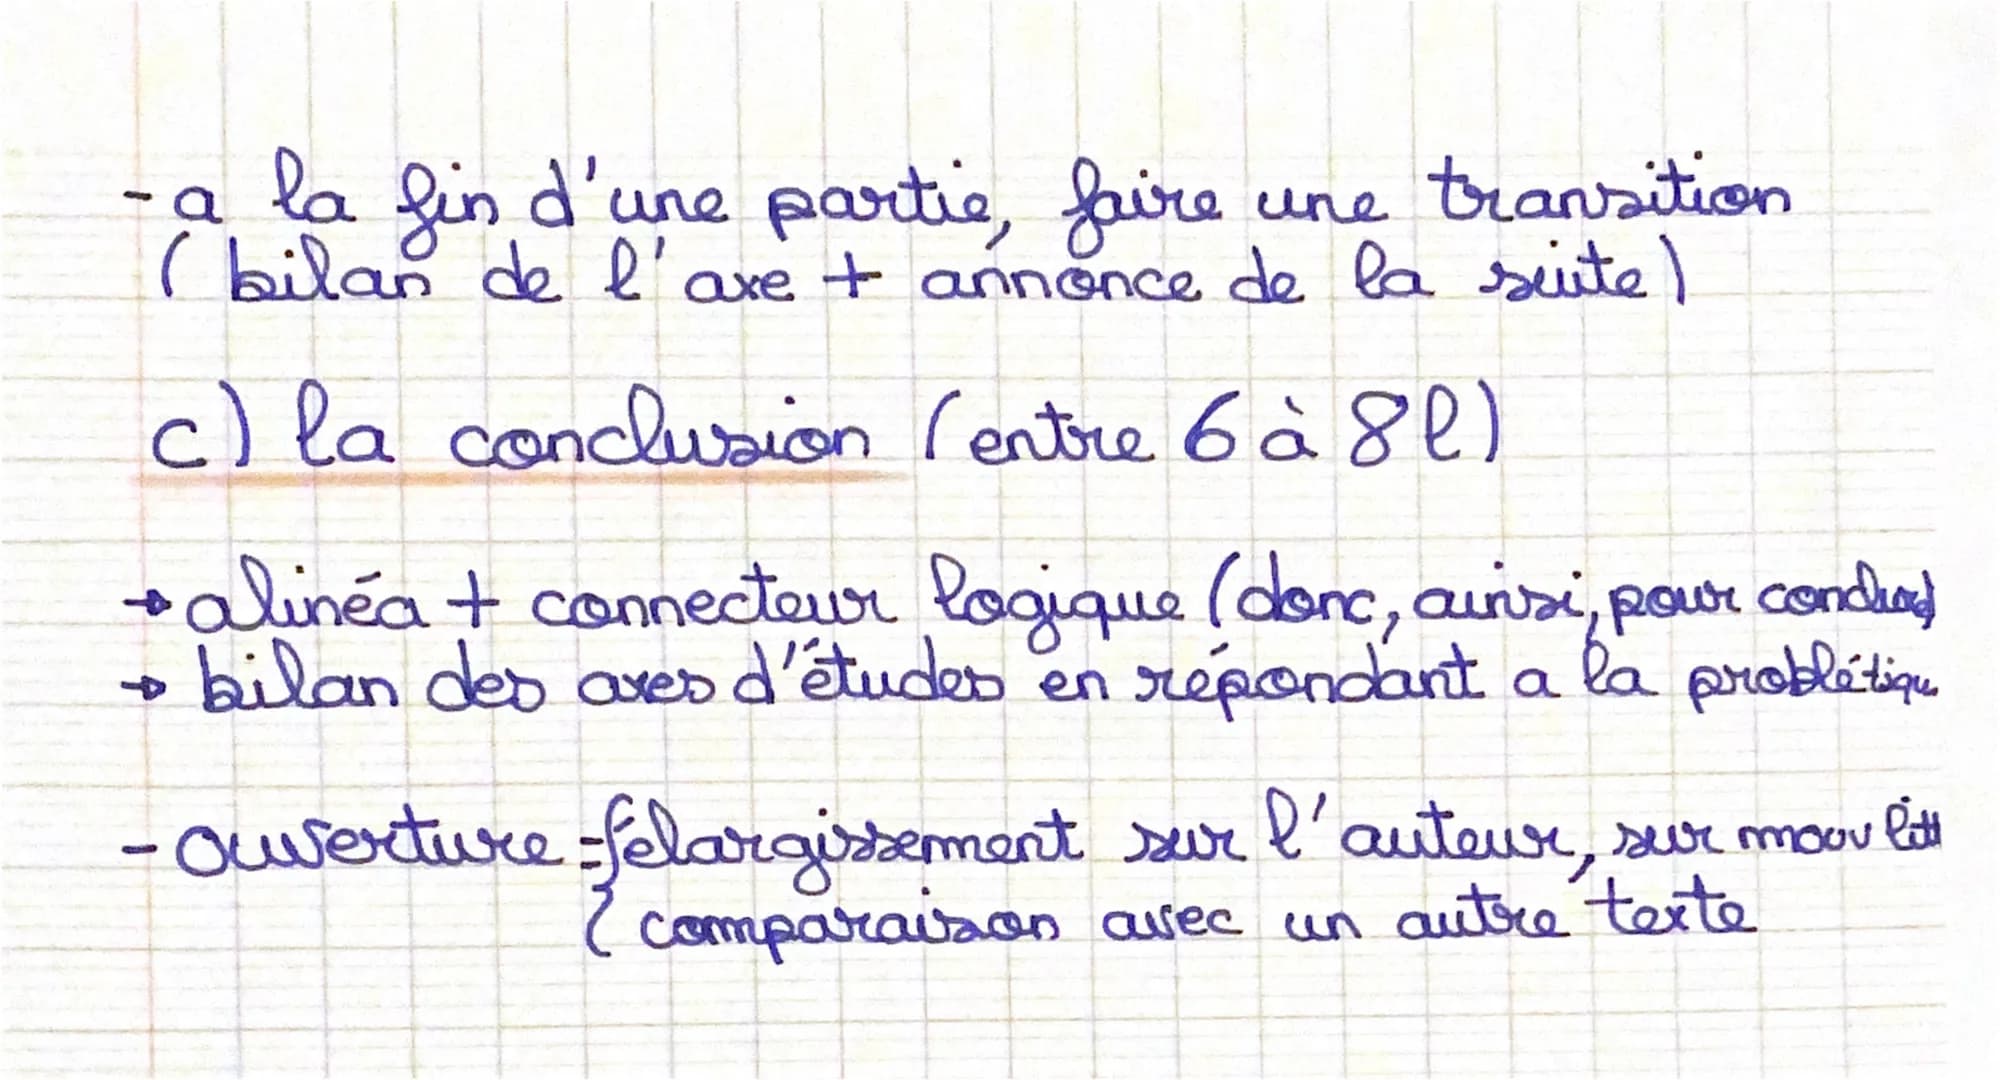 - a la fin d'une partie, faire une transition
( bilan de l'axe + annonce de la suite )
c) la conclusion ( entre 6 à 8l )
→ alinéa + connecteur logique ( donc, ainsi, pour conclure)
→ bilan des axes d'études en répondant a la problétique
- ouverture = { élargissement sur l'auteur, sur mouv litt
{ comparaison avec un autre texte